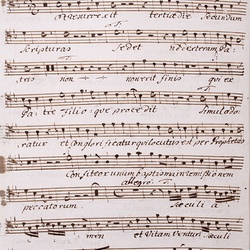 et resurrexit tertia die Secundum
Scripturas Sedet ad dexteram Pa
tris non non erit finis qui ex
Patre Filioque procedit Simul ado
ratur et Conglorificatur qui locutus est per Prophetas
Confiteor unum baptisma in remissionem
allegro.
peccatorum. Saeculi a
men et Vitam Venturi Saeculi